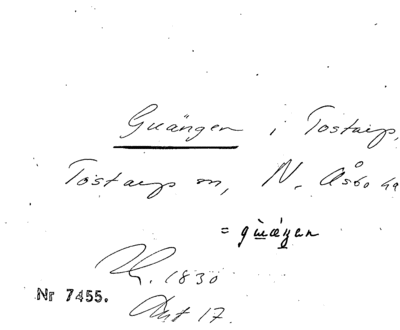 Guängen i Tostarp,
Tostarps sn, N. Åsbo hd
= gùä́gen
1830
Akt 17.
Nr 7455.